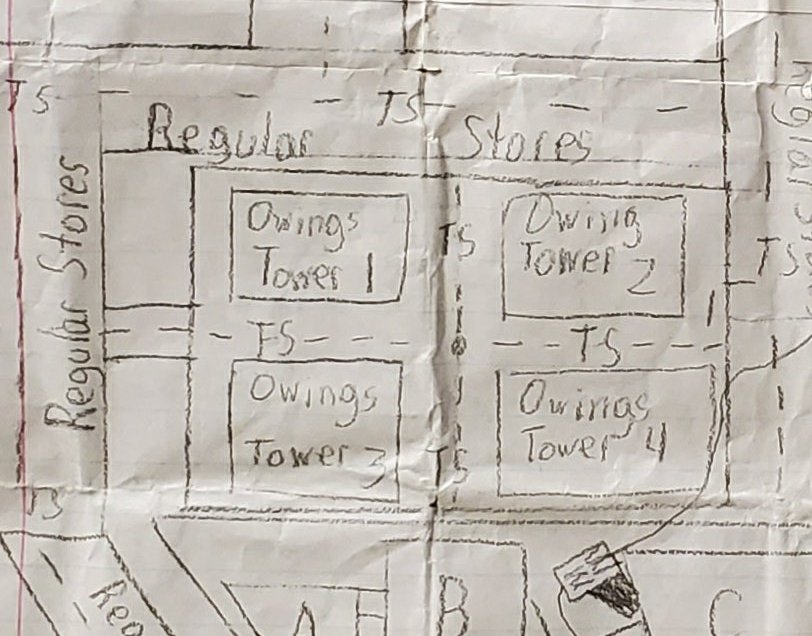 TS
TS
Regular Stores
Regular Stores
Owings
Tower 1
TS
Owing
Tower 2
TS
TS
TS
Owings
Tower 3
TS
Owings
Tower 4
TS
A
B
C